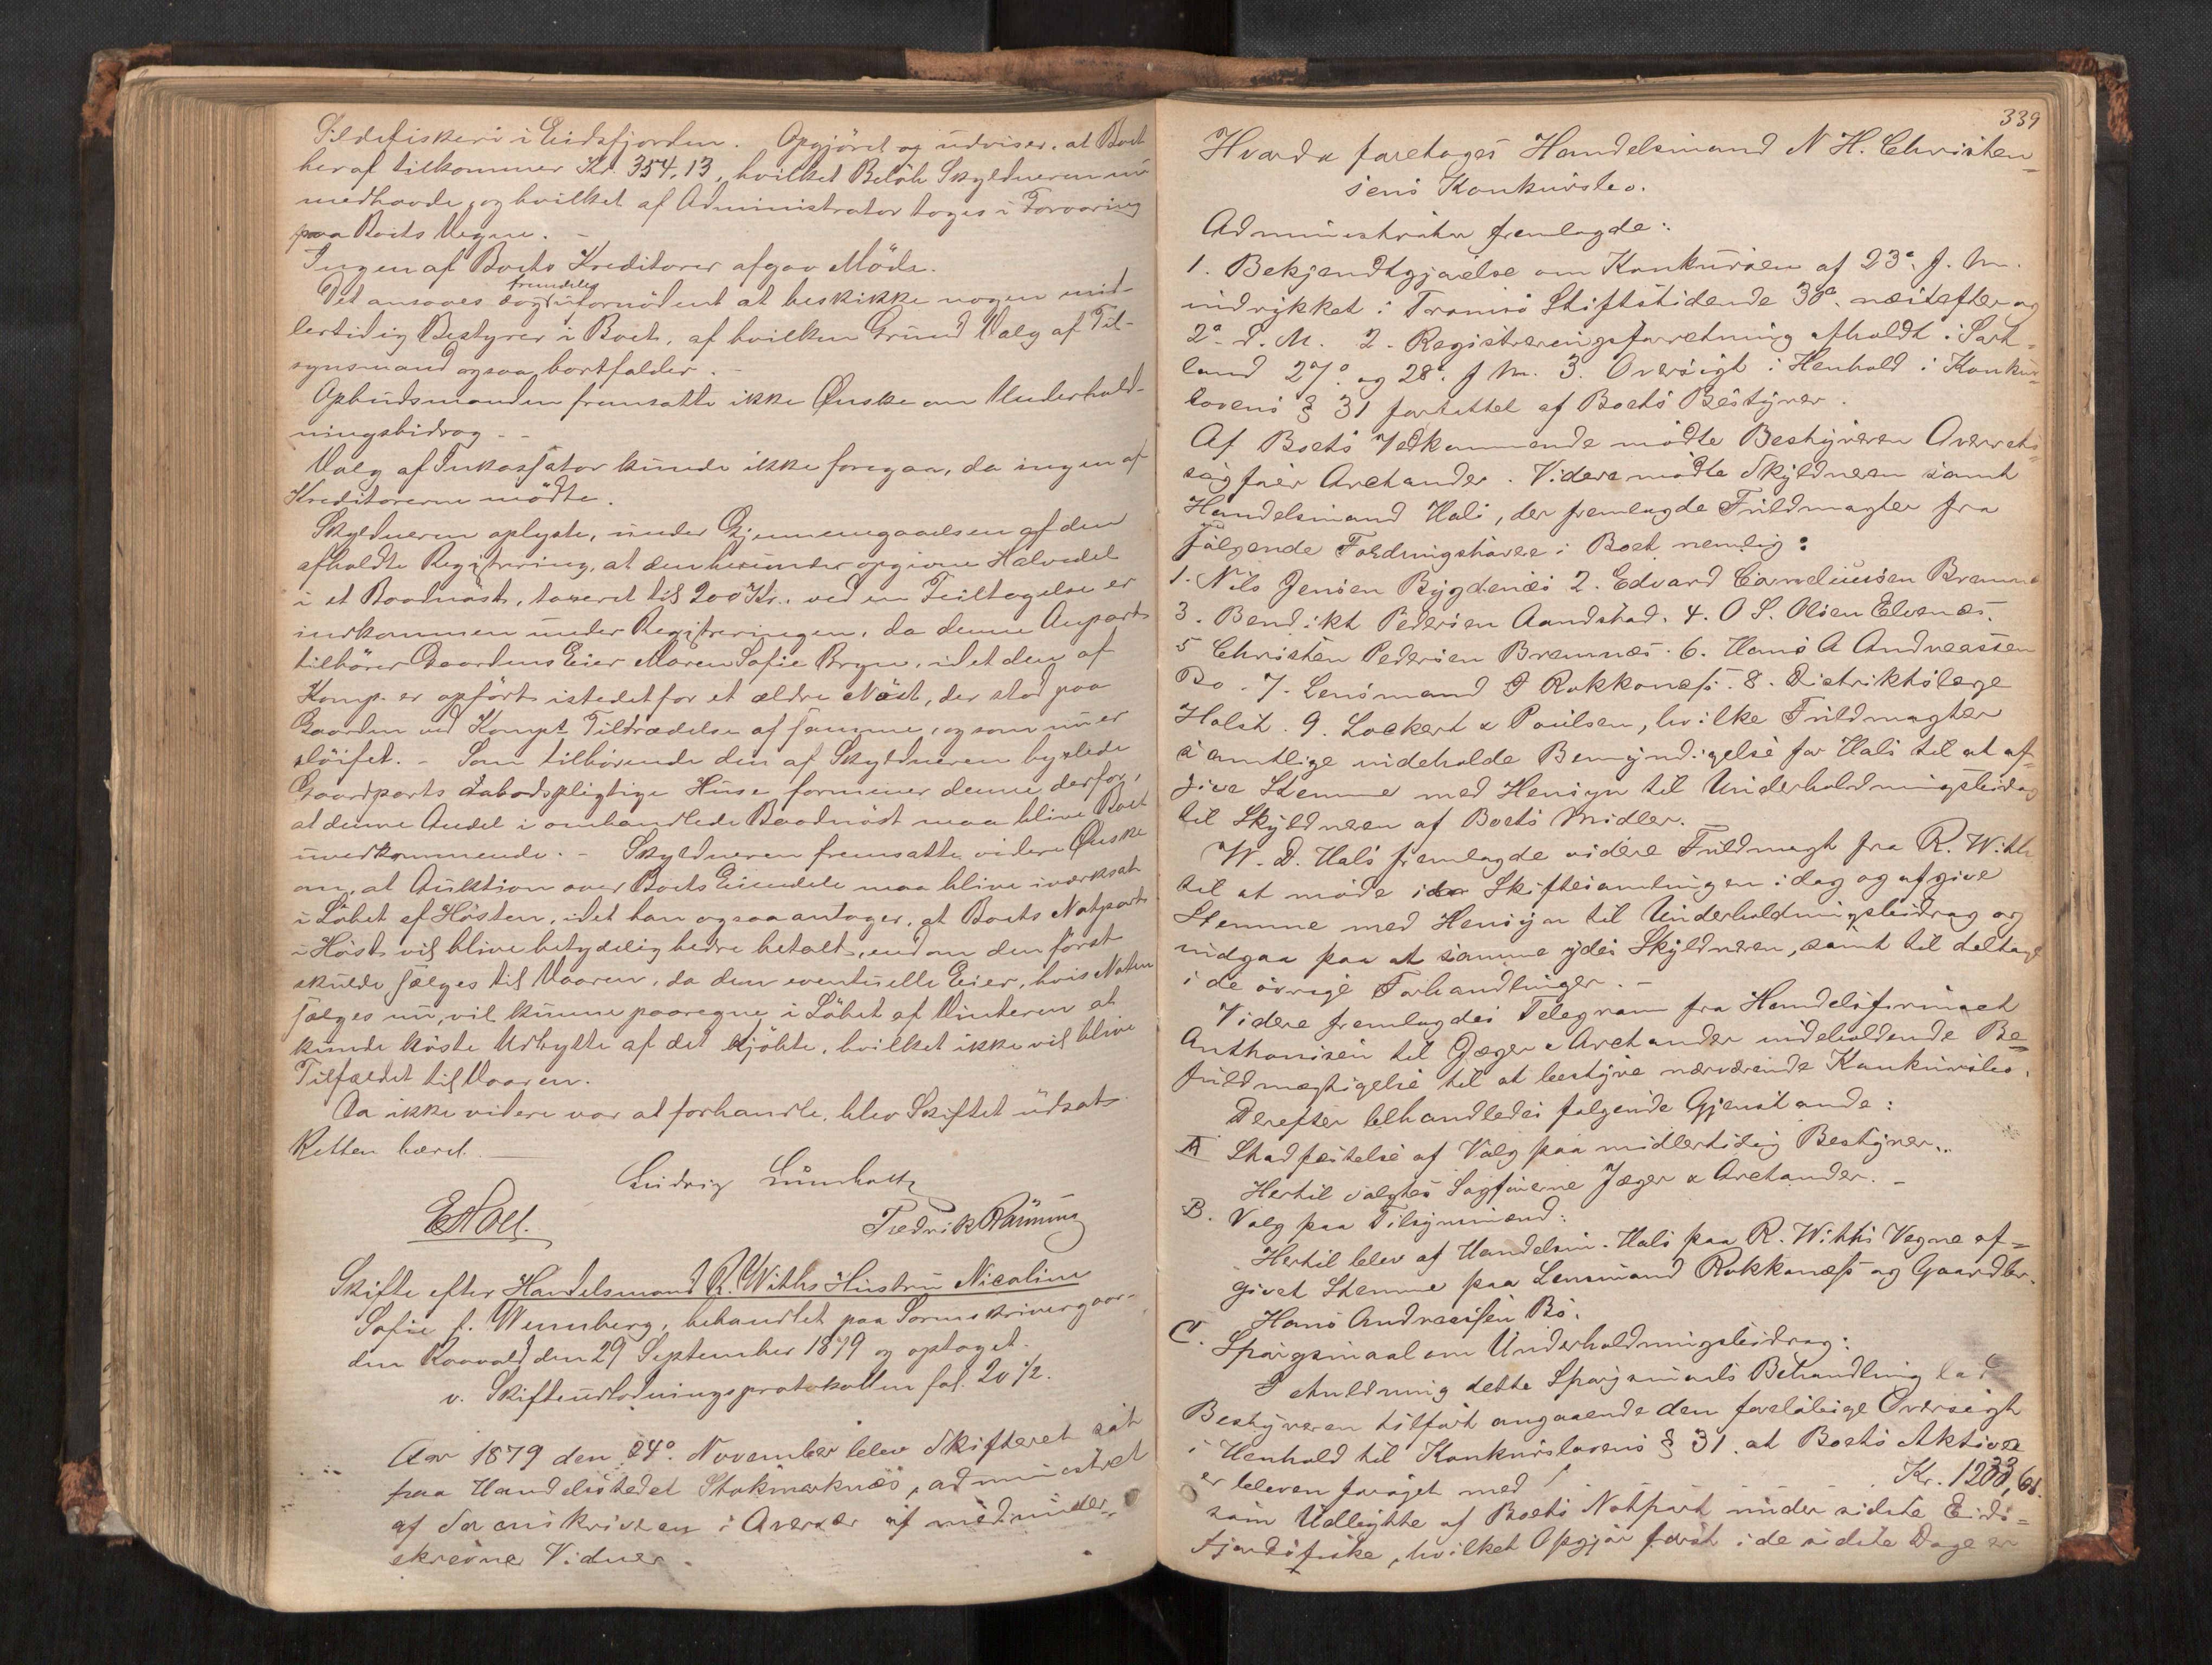 Sildefiskeri i Eidsfjorden. Opgjöret og udviser, at Boet
heraf tilkommer Kr. 354,13, hvilket Belöb Skyldneren nu
medhavde, og hvilket af Administrator toges i Forvaring
paa Boets Vegne. —
Ingen af Boets Kreditorer afgav Möde.
Det ansaaes dog fremdeles ufornödent at beskikke nogen mid-
lertidig Bestyrer i Boet, af hvilken Grund Valg af Til-
synsmand ogsaa bortfalder. —
Opbudsmanden fremsatte ikke Ønske om Underhold-
ningsbidrag. —
Valg af Inkassator kunde ikke foregaa, da ingen af
Kreditorerne mödte.
Skyldneren oplyste, under Gjennemgaaelsen af den
afholdte Registrering, at den herunder opgivne Halvedel
i et Baadnöst, taxeret til 200 Kr., ved en Feiltagelse er
indkommen under Registreringen, da denne Anpart
tilhörer Gaardens Eier Maren Sofie Bryn, idet den af
Komp. er opfört istedetfor et ældre Nöst, der stod paa
Gaarden ved Kompts Tiltrædelse af samme, og som nu er
slöifet. — Som tilhörende den af Skyldneren byxlede
Gaardparts aabodspligtige Huse formener denne derfor,
at denne Andel i omhandlede Baadnöst maa blive Boet
uvedkommende. — Skyldneren fremsatte videre Ønske
om, at Auktion over Boets Eiendele maa blive iværksat
i Löbet af Hösten, idet han ogsaa antager, at Boets Notpart
i Höst vil blive betydelig bedre betalt, end om den först
skulde sælges til Vaaren, da den eventuelle Eier, hvis Noten
sælges nu, vil kunne paaregne i Löbet af Vinteren at
kunde höste Udbytte af det kjöbte, hvilket ikke vil blive
Tilfældet til Vaaren.
Da ikke videre var at forhandle, blev Skiftet udsat.
Retten hævet. —
Ludvig Lumholtz
E Noel. Fredrik Rönning
Skifte efter Handelsmand R. Withs Hustru Nicoline
Sofie f. Wennberg, behandlet paa Sorenskrivergaar-
den Raavold den 29 September 1879 og optaget.
v. Skifteudlodningsprotokollen fol. 20 1/2.
Aar 1879 den 24de November blev Skifteret sat
paa Handelsstedet Stokmarknæs, administreret
af Sorenskriveren i Overvær af medunder-
skrevne Vidner.
339
Hvorda foretoges Handelsmand N H. Christen=
sens Konkursbo.
Administrator fremlagde:
1. Bekjendtgjørelse om Konkursen af 23de f. M.
indrykket i Tromsø Stiftstidende 30de næstefter og
2den d. M. 2. Registreringsforretning afholdt i Sort=
land 27de og 28de f M. 3. Oversigt i Henhold i Konkurs=
lovens § 31 forfattet af Boets Bestyrer.
Af Boets Vedkommende mødte Bestyreren Overrets=
sagfører Arctander. Videre mødte Skyldneren samt
Handelsmand Hals, der fremlagde Fuldmagter fra
følgende Fordringshavere i Boet nemlig:
1. Nils Jensen Bygdenæs 2. Edvard Corneliussen Bremnæs
3. Bendikt Pedersen Aandstad. 4. O S. Olsen Elvenæs.
5 Christen Pedersen Bremnæs. 6. Hans A Andreassen
Bo. 7. Lensmand J Rokkonæss. 8. Distriktslæge
Holst. 9. Lockert & Paulsen, hvilke Fuldmagter
samtlige indeholde Bemyndigelse for Hals til at af=
give Stemme med Hensyn til Underholdningsbidrag
til Skyldneren af Boets Midler. —
W. D. Hals fremlagde videre Fuldmagt fra R. With
til at møde i Skiftesamlingen i dag og afgive
Stemme med Hensyn til Underholdningsbidrag og
udgaa paa at samme ydes Skyldneren, samt til deltage
i de øvrige Forhandlinger. —
Videre fremlagdes Telegram fra Handelsfirmaet
Anthonisen til Jæger & Arctander indeholdende Be=
fuldmægtigelse til at bestyre nærværende Konkursbo.
Derefter behandledes følgende Gjenstande:
A Stadfæstelse af Valg paa midlertidig Bestyrer.
Hertil valgtes Sagførerne Jæger & Arctander. —
B. Valg paa Tilsynsmænd:
Hertil blev af Handelsm. Hals paa R. Withs Vegne af=
givet Stemme paa Lensmand Rokkonæss og Gaardbr.
Hans Andreassen Bø.
C. Spørgsmaal om Underholdningsbidrag:
I Anledning dette Spørgsmaals Behandling lod
Bestyreren tilført angaaende den foreløbige Oversigt
i Henhold til Konkurslovens § 31 at Boets Aktiva
er bleven forøget med Kr. 1233,61.
som Udbytte af Boets Notpart under sidste Eids=
fjordsfiske, hvilket Opgjør først i de sidste Dage er